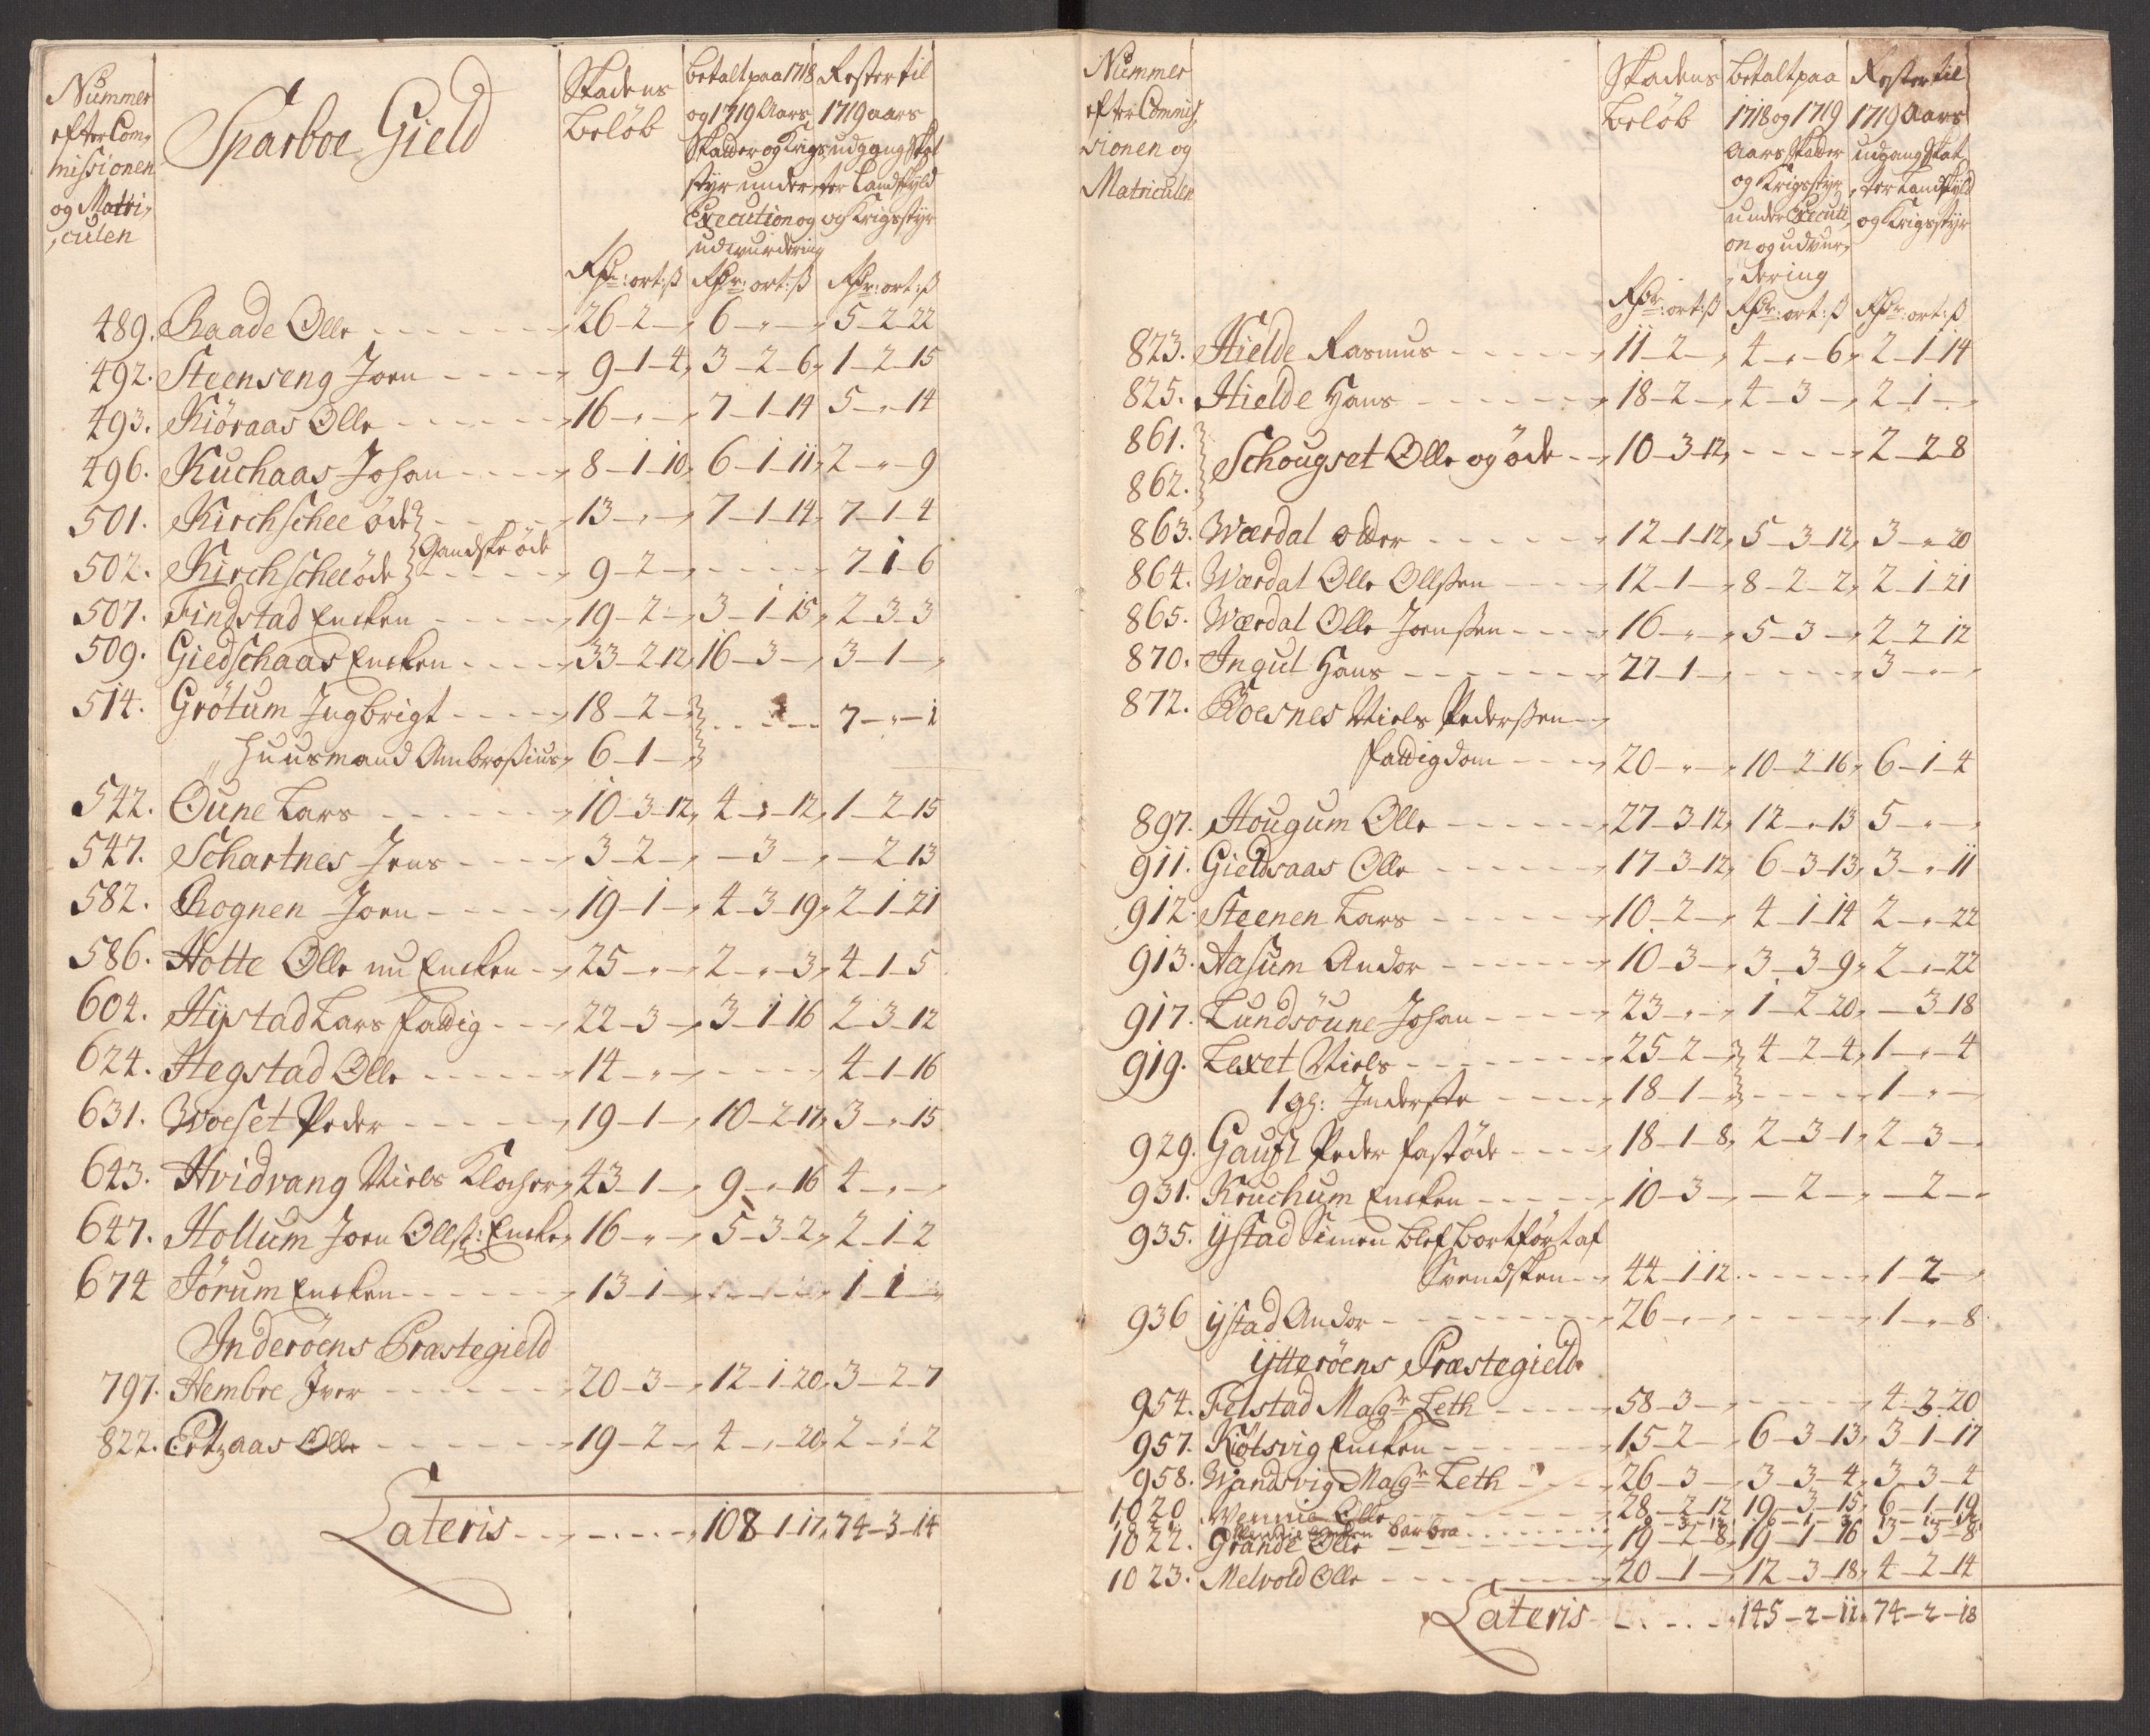 Nummer
efter Com,
missionen
og Matri,
,culen
Sparboe Gield
Skadens
Beløb
betalt paa 1718
og 1719 Aars
Skatter og Krigs
styr under
Execution og
udwurdering
Rester til
1719 aars
udgang Skat
ter Landskyld
og Krigsstyr
Rdr: ort: ß Rdr: ort: ß Rdr: ort: ß
489. Raade Olle - - - - 26-2-„ 6-„-„ 5-2-22
492. Steenseng Joen - - - - 9-1-4, 3-2-6, 1-2-15
493. Kiöraas Olle - - - - 16-„-„ 7-1-14 5-„-14
496. Kuchaas Johan - - - - 8-1-10, 6-1-11, 2-„-9
501. Kirchschee öde - - - - 13-„-„ 7-1-14, 7-1-4
Gandske öde
502. Kirchschee öde - - - - 9-2-„ - - - - 7-1-6
507. Findstad Encken - - - - 19-2-„ 3-1-15, 2-3-3
509. Giedschaas Encken - - - - 33-2-12, 16-3-„ 3-1-„
514. Grötum Ingbrigt - - - - 18-2-„ - - - - 7-„-1
„ Huusmand Ambrosius, 6-1-„
542. Öune Lars - - - - 10-3-12, 4-„-12, 1-2-15
547. Schartnes Jens - - - - 3-2-„ -3-„ -2-13
582. Rognen Joen - - - - 19-1-„ 4-3-19, 2-1-21
586. Hotte Olle nu Encken - - 25-„-„ 2-„-3, 4-1-5
604. Hÿstad Lars fattig - - - 22-3-„ 3-1-16 2-3-12
624. Hegstad Olle - - - - 14-„-„ - - - - 4-1-16
631. Woeset Peder - - - - 19-1-„ 10-2-17, 3-„-15
643. Hvidvang Niels Klocher, 43-1-„ 9-„-16 4-„-„
647. Hollum Joen Ollß: Encke, 16-„-„ 5-3-2, 2-1-2
674 Jörum Encken - - - - 13-1-„ - - - - 1-1-„
Inderöens Præstegield
797. Hembre Iver - - - - 20-3-„ 12-1-20, 3-2-7
822. Ertzaas Olle - - - - 19-2-„ 4-„-20, 2-1-2
Lateris - - - - 108-1-17, 74-3-14
Nummer
efter Commis
sionen og
Matriculen
Skadens
Beløb
betalt paa
1718 og 1719
Aars Skatter
og Krigsstyr
under Executi,
on og udvur,
,dering
Rester til
1719 Aars
udgang Skat
,ter Landskyld
og Krigsstyr
Rdr: ort: ß Rdr: ort: ß Rdr: ort: ß
823. Hielde Rasmus - - - - 11-2-„ 4-„-6, 2-1-14
825. Hielde Hans - - - - 18-2-„ 4-3-„ 2-1-„
861.
862. Schougset Olle og öde - - 10-3-12, - - - - 2-2-8
863. Wærdal - - - - 12-1-12, 5-3-12, 3-„-20
864. Wærdal Olle Ollßen - - - - 12-1-„ 8-2-2, 2-1-21
865. Wærdal Olle Joenßen - - - - 16-„-„ 5-3-„ 2-2-12
870. Ingul Hans - - - - 27-1-„ - - - - 3-„-„
872. Roesnes Niels Pederßen
fattigdom - - - - 20-„-„ 10-2-16, 6-1-4
897. Hougum Olle - - - - 27-3-12, 12-„-13 5-„-„
911. Gieldsaas Olle - - - - 17-3-12, 6-3-13, 3-„-11
912. Steenen Lars - - - - 10-2-„ 4-1-14 2-„-22
913. Aasum Andor - - - - 10-3-„ 3-3-9, 2-„-22
917. Lundsöune Johan - - - - 23-„-„ 1-2-20, -3-18
919. Lexet Niels - - - - 25-2-„ 4-2-4, 1-„-4
1 gl: Inderste - - - - 18-1-„ - - - - 1-„-„
929. Gaust Peder fast öde - - - - 18-1-8, 2-3-1, 2-3-„
931. Kruchum Encken - - - - 10-3-„ -2-„ -2-„
935. ÿstad Simen blef bortført af
Svendsken - - 44-1-12 - - - - 1-2-„
936 ÿstad Andor - - - - 26-„-„ - - - - 1-„-8
ÿtteröens Præstegield
954. Felstad Magr Leth - - - - 58-3-„ - - - - 4-3-20
957. Kiölsvig Encken - - - - 15-2-„ 6-3-13, 3-1-17
958. Wandsvig Magr Leth - - 26-3-„ 3-3-4, 3-3-4
1020 Wennie Olle - - - - 28-2-12 19-3-15, 6-1-19
barbra
1022. Grande Olle - - - - 19-2-8, 19-1-16 3-3-8
1023. Melvold Olle - - - - 20-1-„ 12-3-18, 4-2-14
Lateris - - - - 145-2-11, 74-2-18